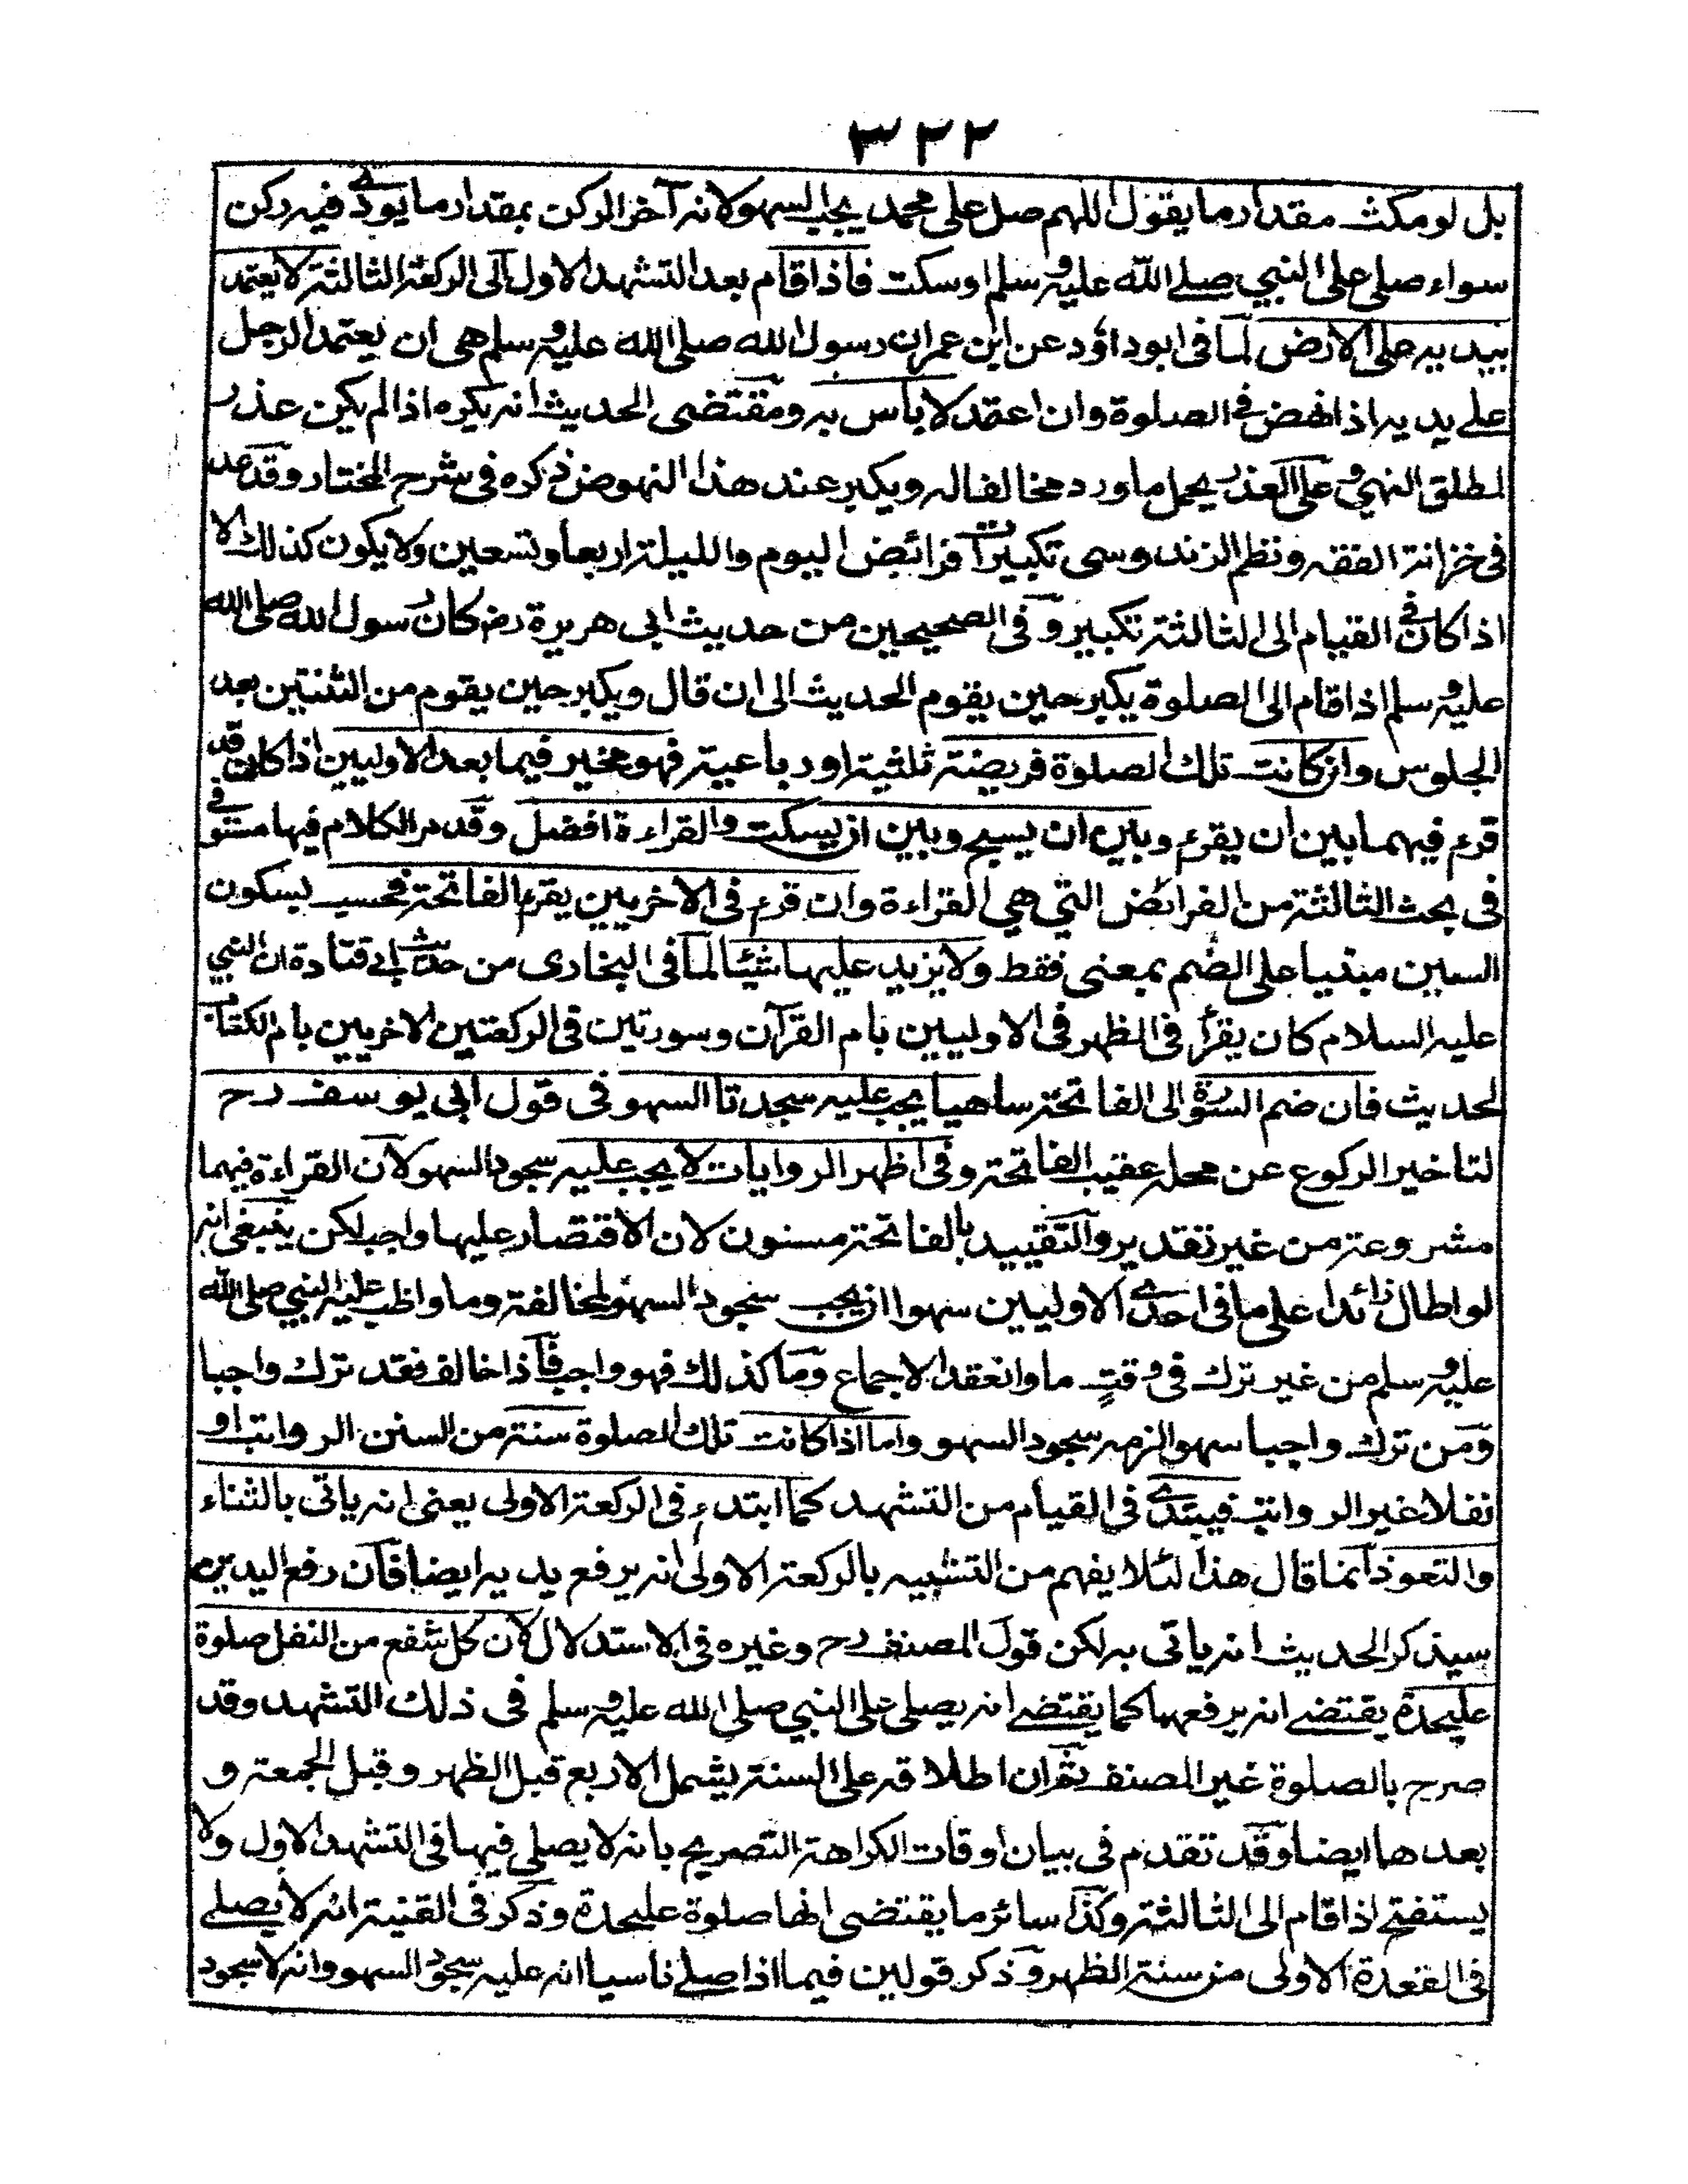 ٣٢٢
بل لو مكث مقدار ما يقول اللهم صل على محمد يجب السهو لانه آخر الركن بمقدار ما يودى فيه ركن
سواء صلى على النبي صلى الله عليه وسلم او سكت فاذا قام بعد التشهد الاول الى الركعة الثالثة لا يعتمد
بيديه على الارض لما فى ابو داؤد عن ابن عمر ان رسول الله صلى الله عليه وسلم هى ان يعتمد الرجل
على يديه اذا نهض فى الصلوة وان اعتمد لا باس به ومقتضى الحديث انه يكره اذا لم يكن عذر
لطلق النهى وعلى العذر يحمل ما ورد مخالفا له ويكبر عند هذا النهوض ذكره فى شرح المختار وقد عد
فى خزانة الفقه ونظم الزندوسى تكبيرات فرائض اليوم والليلة اربعا وتسعين ولا يكون كذلك الا
اذا كان فى القيام الى الثالثة تكبير وفى الصحيحين من حديث ابى هريرة رض كان رسول الله صلى الله
عليه وسلم اذا قام الى الصلوة يكبر حين يقوم الحديث الى ان قال ويكبر حين يقوم من الثنتين بعد
الجلوس وان كانت تلك الصلوة فريضة ثلثية او رباعية فهو مخير فيما بعد الاوليين اذا كان قد
قرء فيهما بين ان يقرء وبين ان يسبح وبين ان يسكت والقراءة افضل وقد مر الكلام فيها مستوفى
فى بحث الثالثة من الفرائض التي هي القراءة وان قرء فى الاخريين يقرء الفاتحة فحسب بسكون
السين مبنيا على الضم بمعنى فقط ولا يزيد عليها شيئا لما فى البخارى من حديث ابى قتادة ان النبي
عليه السلام كان يقرأ فى الظهر فى الاوليين بام القرآن وسورتين فى الركعتين الاخريين بام الكتاب
الحديث فان ضم السورة الى الفاتحة ساهيا يجب عليه سجدتا السهو فى قول ابى يوسف رح
لتاخير الركوع عن محله عقيب الفاتحة وفى اظهر الروايات لا يجب عليه سجود السهو لان القراءة فيهما
مشروعة من غير تقدير والتقييد بالفاتحة مسنون لان الاقتصار عليها واجب لكن ينبغى انه
لو اطال زائدا على ما فى احدى الاوليين سهوا ان يجب سجود السهو لمخالفته وما واظب عليه النبي صلى الله
عليه وسلم من غير ترك فى وقتٍ ما وانعقد الاجماع وما كذلك فهو واجب فاذا خالف فقد ترك واجبا
ومن ترك واجبا سهوا لزمه سجود السهو واما اذا كانت تلك الصلوة سنة من السنن الرواتب او
نفلا غير الرواتب فيبتدى فى القيام من التشهد كما ابتدء فى الركعة الاولى يعنى انه ياتى بالثناء
والتعوذ انما قال هذا لئلا يفهم من التشبيه بالركعة الاولى انه يرفع يديه ايضا فان رفع اليدين
سيذكر الحديث انه ياتى به لكن قول المصنف رح وغيره فى الاستدلال لان كل شفع من النفل صلوة
عليحدة يقتضى انه يرفعهما كما يقتضى انه يصلى على النبي صلى الله عليه وسلم فى ذلك التشهد وقد
صرح بالصلوة غير المصنف ثم ان اطلاقه على السنة يشمل الاربع قبل الظهر وقبل الجمعة و
بعدها ايضا وقد تقدم فى بيان اوقات الكراهة التصريح بانه لا يصلى فيها فى التشهد الاول ولا
يستفتح اذا قام الى الثالثة وكذا سائر ما يقتضى انها صلوة عليحدة وذكر فى القنية انه لا يصلى
فى القعدة الاولى من سنة الظهر وذكر قولين فيما اذا صلى ناسيا انه عليه سجود السهو وانه لا سجود